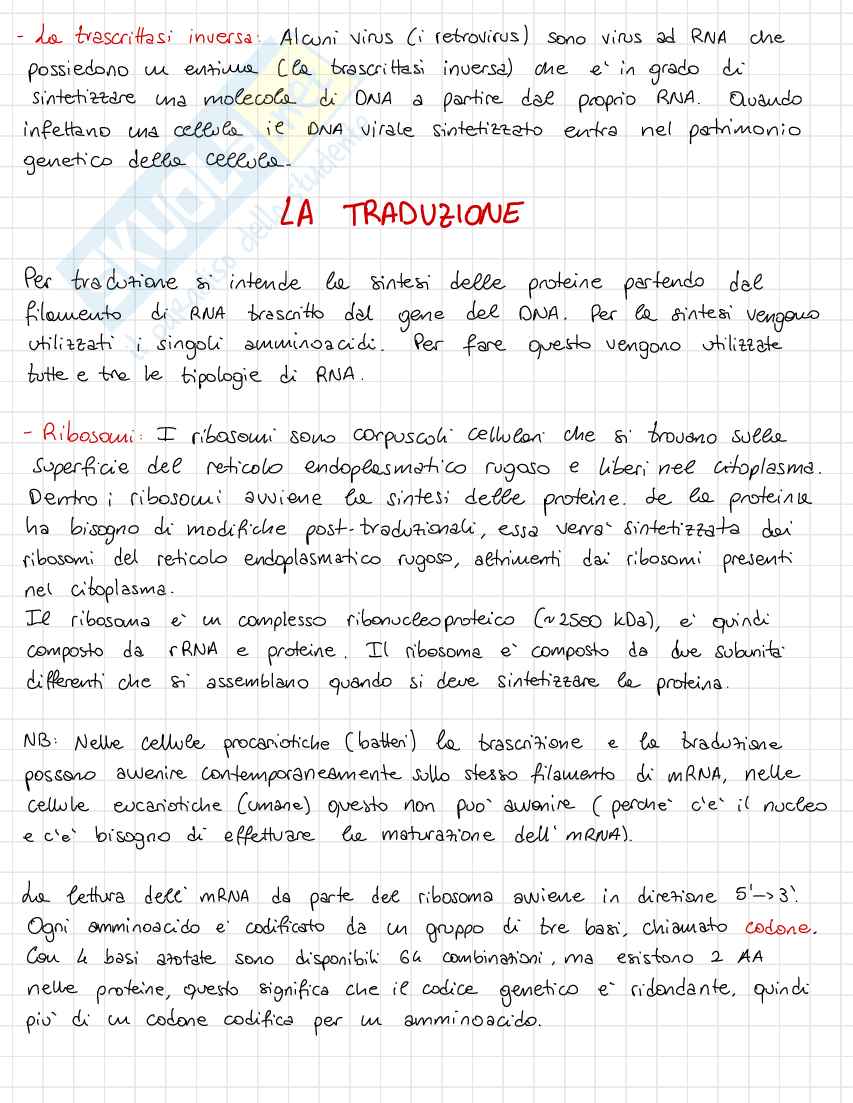 - La trascrittasi inversa: Alcuni virus (i retrovirus) sono virus ad RNA che
possiedono un enzima (la trascrittasi inversa) che e' in grado di
sintetizzare una molecola di DNA a partire dal proprio RNA. Quando
infettano una cellula il DNA virale sintetizzato entra nel patrimonio
genetico della cellula.
LA TRADUZIONE
Per traduzione si intende la sintesi delle proteine partendo dal
filamento di RNA trascritto dal gene del DNA. Per la sintesi vengono
utilizzati i singoli amminoacidi. Per fare questo vengono utilizzate
tutte e tre le tipologie di RNA.
- Ribosomi: I ribosomi sono corpuscoli cellulari che si trovano sulla
superficie del reticolo endoplasmatico rugoso e liberi nel citoplasma.
Dentro i ribosomi avviene la sintesi delle proteine. Se la proteina
ha bisogno di modifiche post-traduzionali, essa verra' sintetizzata dai
ribosomi del reticolo endoplasmatico rugoso, altrimenti dai ribosomi presenti
nel citoplasma.
Il ribosoma e' un complesso ribonucleoproteico (~2500 kDa), e' quindi
composto da rRNA e proteine. Il ribosoma e' composto da due subunita'
differenti che si assemblano quando si deve sintetizzare la proteina.
NB: Nelle cellule procariotiche (batteri) la trascrizione e la traduzione
possono avvenire contemporaneamente sullo stesso filamento di mRNA, nelle
cellule eucariotiche (umane) questo non puo' avvenire (perche' c'e' il nucleo
e c'e' bisogno di effettuare la maturazione dell' mRNA).
La lettura dell' mRNA da parte del ribosoma avviene in direzione 5'->3'.
Ogni amminoacido e' codificato da un gruppo di tre basi, chiamato codone.
Con 4 basi azotate sono disponibili 64 combinazioni, ma esistono 2 AA
nelle proteine, questo significa che il codice genetico e' ridondante, quindi
piu' di un codone codifica per un amminoacido.
SKUOLA.net
il paradiso dello studente